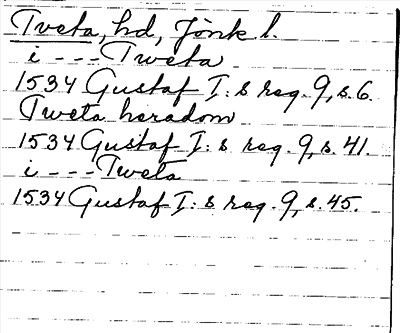 Tveta, hd, Jönk l.
i - - - Tweta
1534 Gustaf I:s reg. 9, s. 6.
Tweta heradom
1534 Gustaf I:s reg. 9, s. 41.
i - - - Tweta
1534 Gustaf I:s reg. 9, s. 45.